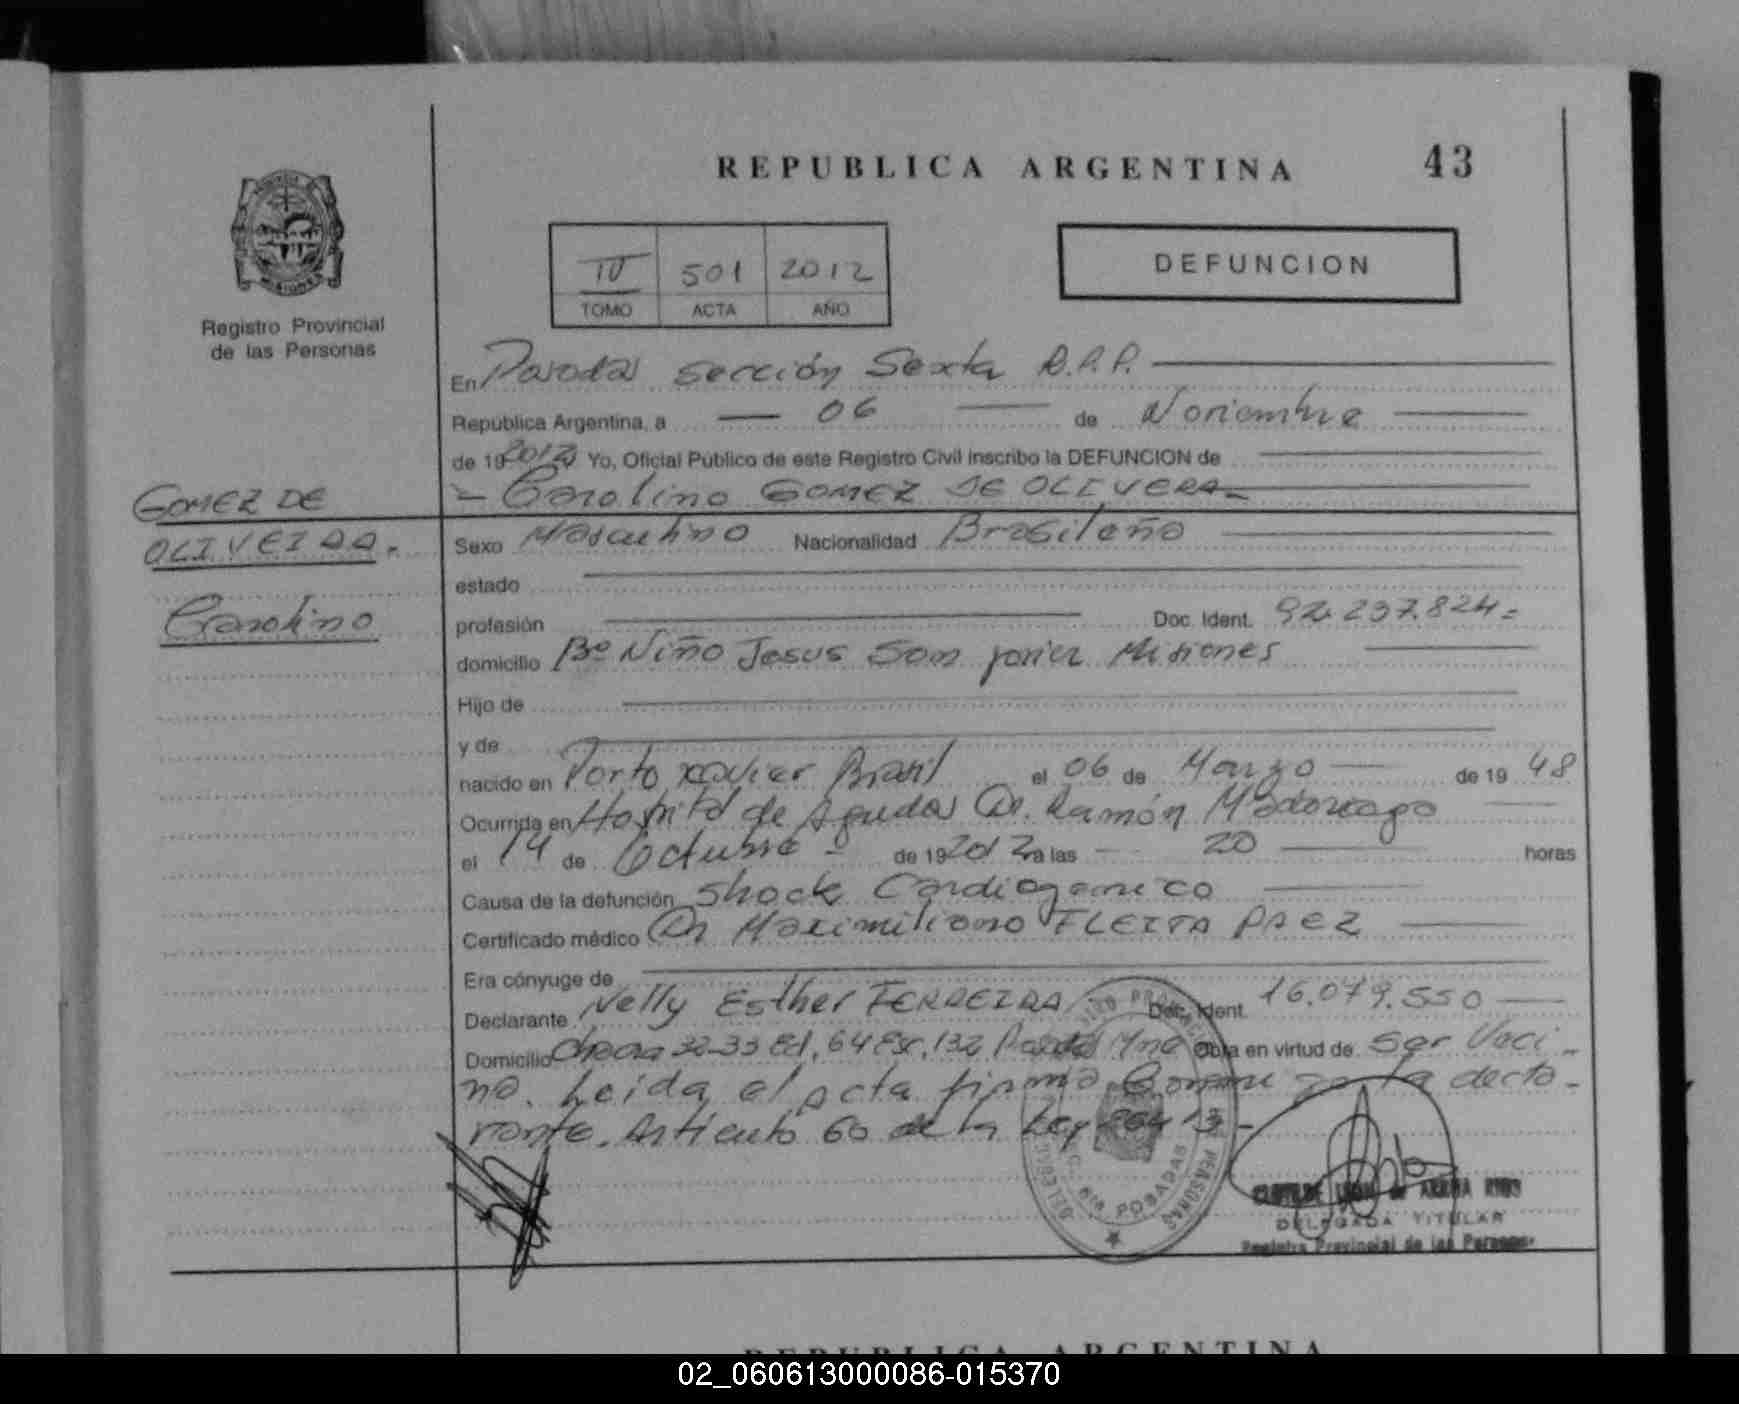 REPUBLICA ARGENTINA 43
IV 501 2012
TOMO ACTA AÑO
DEFUNCION
Registro Provincial
de las Personas
En Posadas Sección Sexta R.P.P.
República Argentina, a 06 de Noviembre
de 19 2012 Yo, Oficial Público de este Registro Civil inscribo la DEFUNCION de
Carolino GOMEZ DE OLIVERA
GOMEZ DE
OLIVEIRA.
Carolino
Sexo Masculino Nacionalidad Brasileño
estado
profesión Doc. Ident. 92.237.824
domicilio Bº Niño Jesus San Javier Misiones
Hijo de
y de
nacido en Porto Xavier Brasil el 06 de Marzo de 19 48
Ocurrida en Hospital de Agudos Dr. Ramón Madariaga
el 14 de Octubre de 19 2012 a las 20 horas
Causa de la defunción Shock Cardiogenico
Certificado médico Dr Maximiliano FLEITA PAEZ
Era cónyuge de
Declarante Nelly Esther FERREIRA Doc. Ident. 16.079.550
Domicilio Chacra 32-33 Ed. 64 Esc. 132 Posadas Mnes Obra en virtud de Ser Veci-
na. Leida el acta firma Conmigo la decla-
rante. Articulo 60 de la Ley 26413-
6ta. POSADAS
DELEGADA TITULAR
Registro Provincial de las Personas
REPUBLICA ARGENTINA
02_060613000086-015370